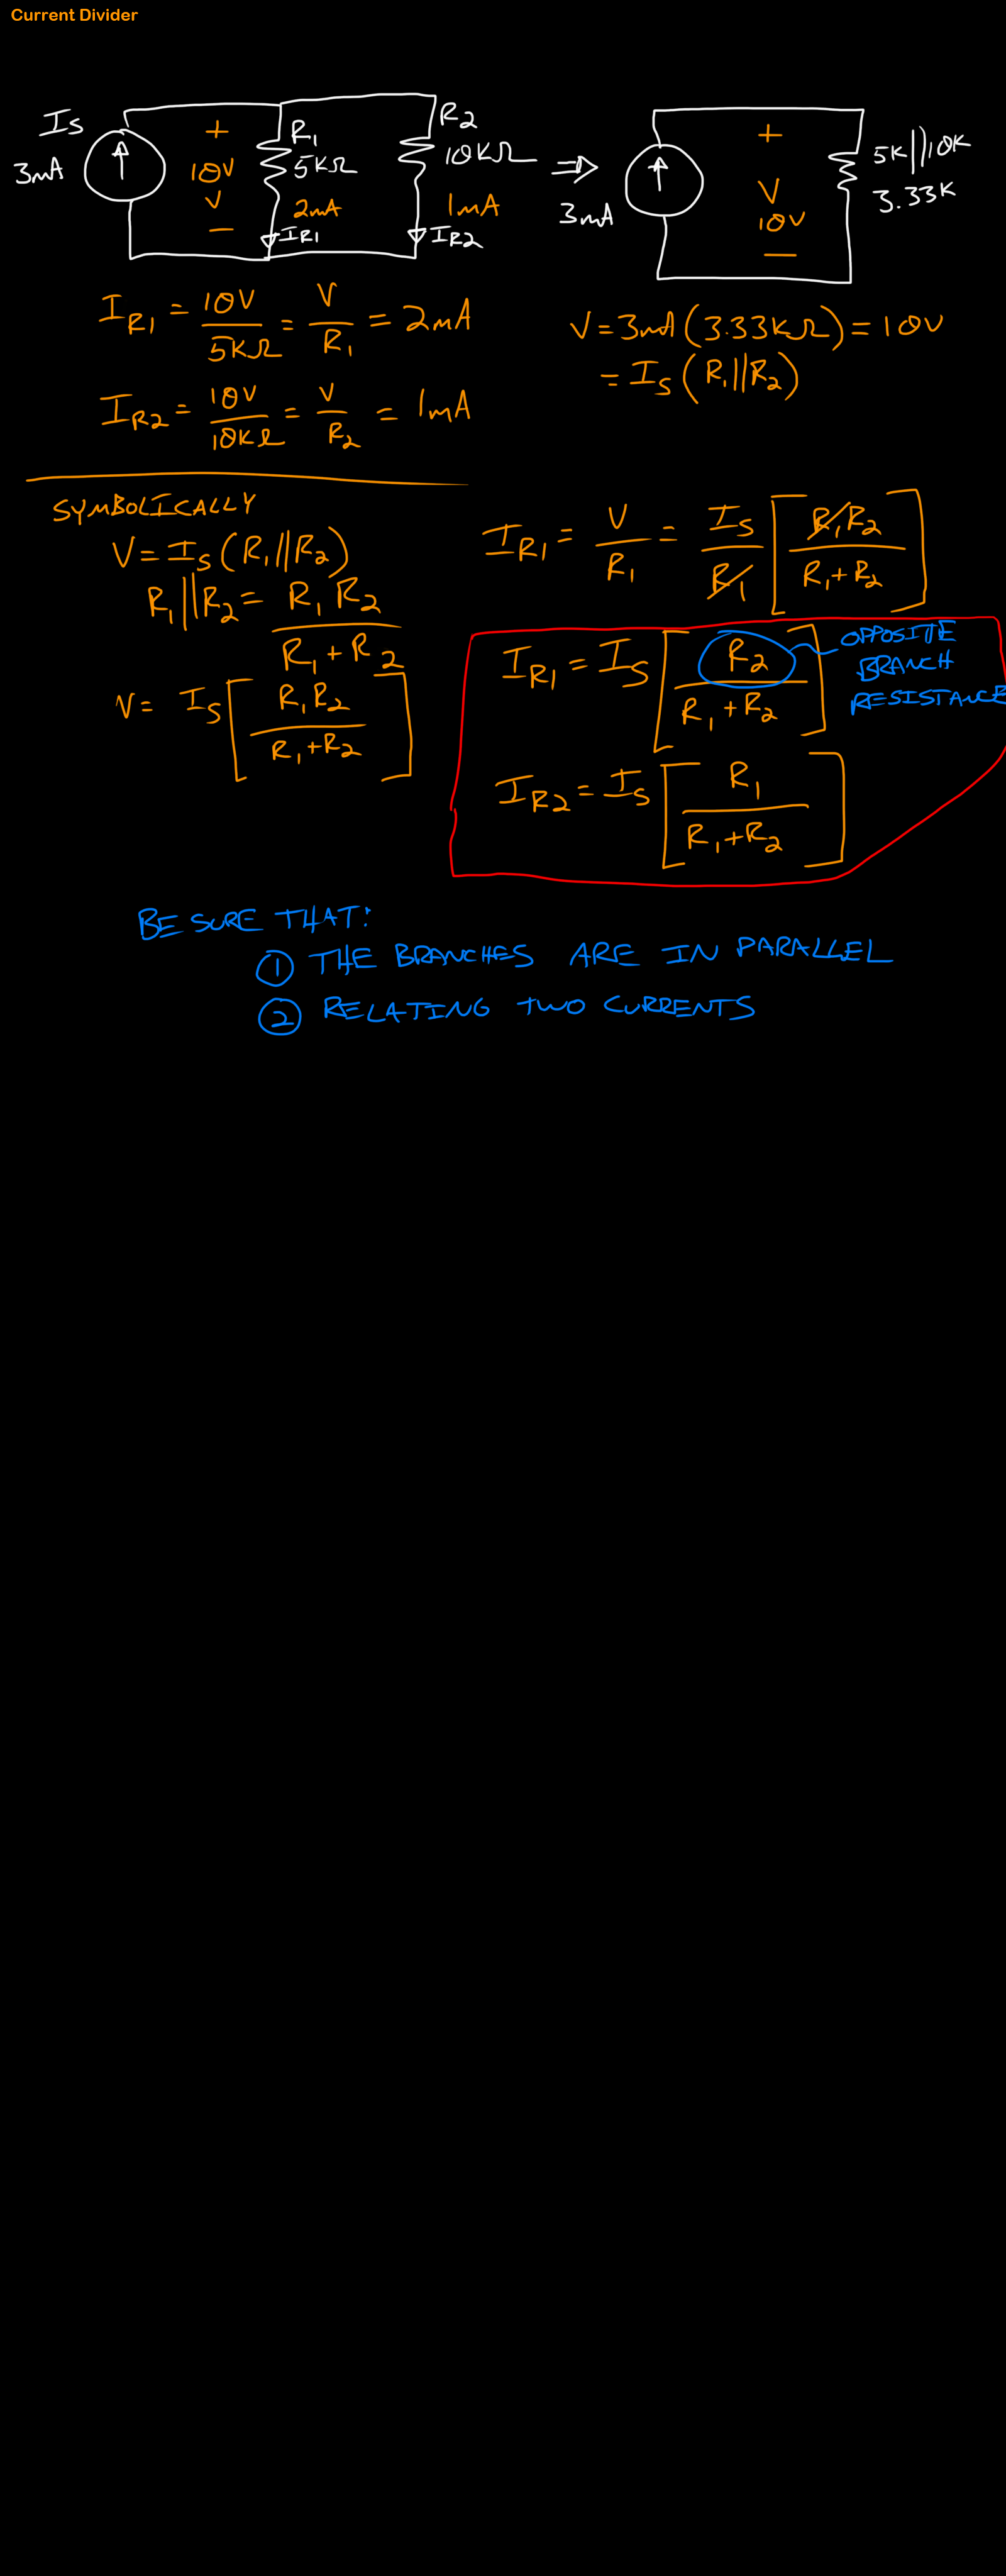 Current Divider
Is
3mA
+
10V
V
−
R1
5KΩ
2mA
IR1
R2
10KΩ
1mA
IR2
⇒
3mA
+
V
10V
−
5K||10K
3.33K
IR1 = 10V/5KΩ = V/R1 = 2mA
V = 3mA(3.33KΩ) = 10V
= Is(R1||R2)
IR2 = 10V/10KΩ = V/R2 = 1mA
SYMBOLICALLY
V = Is(R1||R2)
R1||R2 = R1 R2/(R1 + R2)
V = Is[R1R2/(R1+R2)]
IR1 = V/R1 = Is/R1 [R1R2/(R1+R2)]
IR1 = Is[R2/(R1+R2)]
OPPOSITE
BRANCH
RESISTANCE
IR2 = Is[R1/(R1+R2)]
BE SURE THAT:
① THE BRANCHES ARE IN PARALLEL
② RELATING TWO CURRENTS